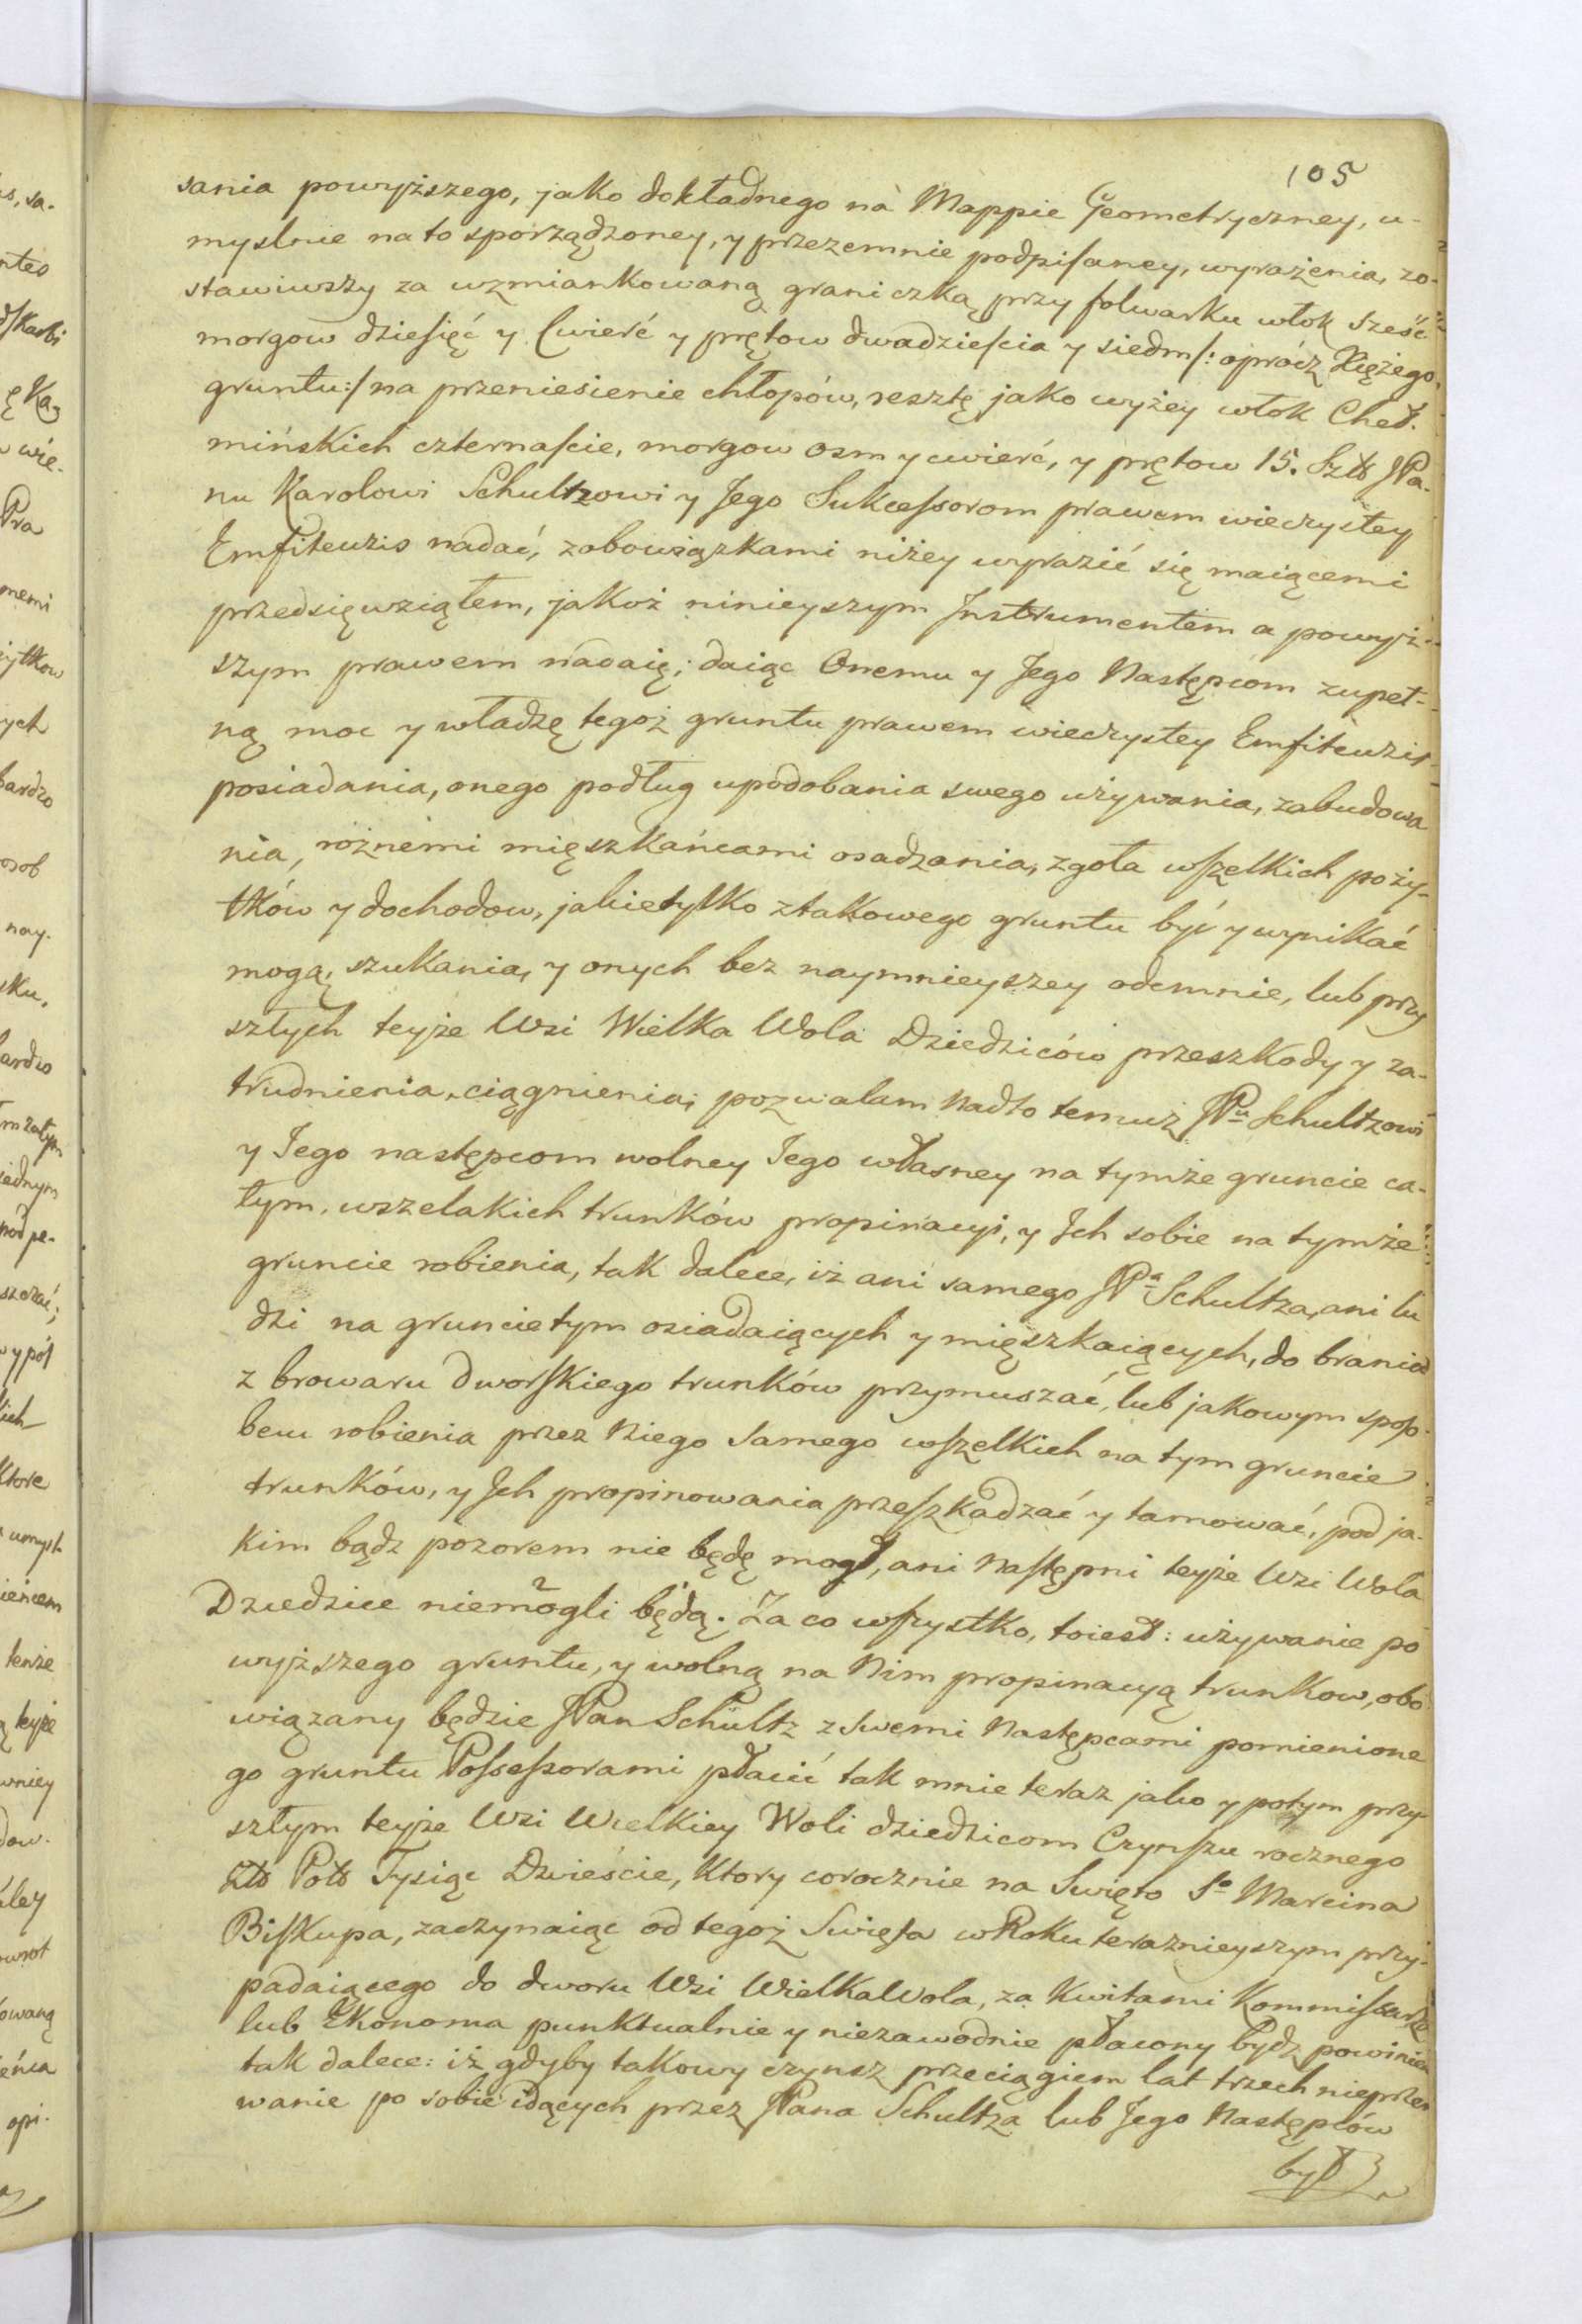 105
sania powyższego, jako dokładnego na Mappie Geometryczney, u-
myslnie na to sporządzoney, y przezemnie podpisaney, wyrażenia, zo-
stawiwszy za wzmiankowaną graniczką przy folwarku włok sześć
morgow dziesięć y Cwierć y prętow dwadzieścia y siedm /: oprócz Xiężego
gruntu :/ na przeniesienie chłopów, resztę jako wyżey włok Cheł-
mińskich czternaście, morgow osm y cwierć, y prętow 15. JPa-
nu Karolowi Schultzowi y Jego Sukcessorom prawem wieczystey
Emfiteuzis nadać, z obowiązkami niżey wyrazić się maiącemi
przedsięwziąłem, jakoż ninieyszym Instrumentem a powyż-
szym prawem nadaię; daiąc Onemu y Jego Następcom zupeł-
ną moc y władzę tegoż gruntu prawem wieczystey Emfiteuzis
posiadania, onego podług upodobania swego używania, zabudowa
nia, rożnemi mięszkańcami osadzania, zgoła wszelkich poży-
tków y dochodow, jakie tylko z takowego gruntu być y wynikać
mogą, szukania, y onych bez naymnieyszey odemnie, lub przy
szłych teyże Wsi Wielka Wola Dziedziców przeszkody y za-
trudnienia, ciągnienia; pozwalam nadto temuż JPu Schultzowi
y Jego następcom wolney Jego własney na tymże gruncie ca-
łym, wszelakich trunków propinacyi, y Ich sobie na tymże
gruncie robienia, tak dalece, iż ani samego JPa Schultza, ani lu
dzi na gruncie tym osiadaiących y mięszkaiących, do brania
z browaru dworskiego trunków przymuszać, lub jakowym sposo-
bem robienia przez Niego samego wszelkich na tym gruncie
trunków, y Ich propinowania przeszkadzać y tamować, pod ja-
kim bądz pozorem nie będę mogł, ani Następni teyże Wsi Wola
Dziedzice niemogli będą. Za co wszystko, toiest: używanie po
wyższego gruntu, y wolną na Nim propinacyą trunkow, obo
wiązany będzie JPan Schultz z Swemi Następcami pomienione
go gruntu Possessorami płacić tak mnie teraz jako y potym przy-
szłym teyże Wsi Wielkiey Woli dziedzicom Czynszu rocznego
Tysiąc Dwieście, Ktory corocznie na Swięto So Marcina
Biskupa, zaczynaiąc od tegoż Swięta w Roku teraznieyszym przy-
padaiącego do dworu Wsi Wielka Wola, za Kwitami Kommissarza
lub Ekonoma punktualnie y niezawodnie płacony bydz powinien
tak dalece: iż gdyby takowy czynsz przeciągiem lat trzech nieprzer
wanie po sobie idących przez JPana Schultza lub Jego Następców
był